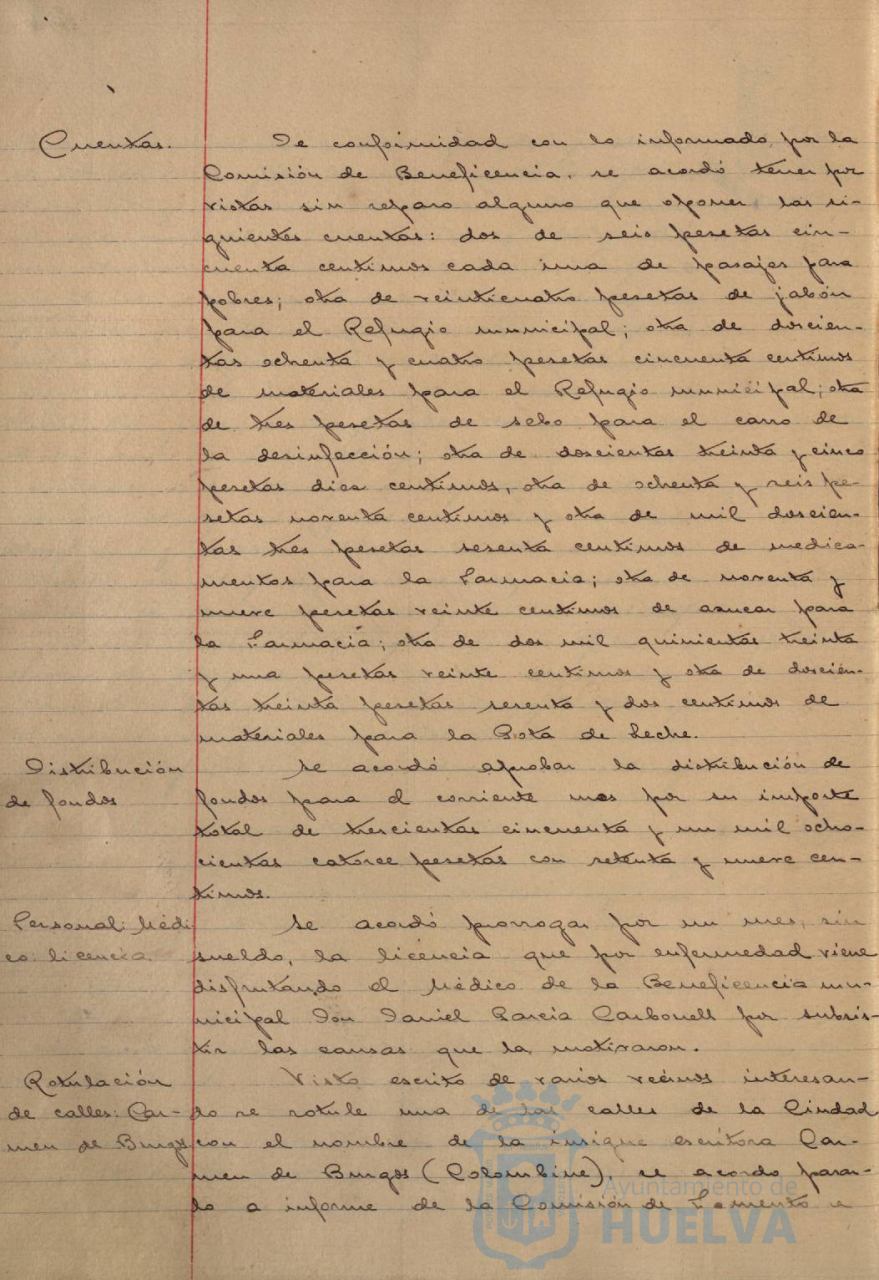 Cuentas.
De conformidad con lo informado por la
Comisión de Beneficencia, se acordó tener por
vistas sin reparo alguno que oponer las si-
guientes cuentas: dos de seis pesetas cin-
cuenta centimos cada una de pasajes para
pobres; otra de veinticuatro pesetas de jabón
para el Refugio municipal; otra de doscien-
tas ochenta y cuatro pesetas cincuenta centimos
de materiales para el Refugio municipal; otra
de tres pesetas de sebo para el carro de
la desinfección; otra de doscientas treinta y cinco
pesetas diez centimos, otra de ochenta y seis pe-
setas noventa centimos y otra de mil doscien-
tas tres pesetas sesenta centimos de medica-
mentos para la Farmacia; otra de noventa y
nueve pesetas veinte centimos de azucar para
la Farmacia; otra de dos mil quinientas treinta
y una pesetas veinte centimos y otra de doscien-
tas treinta pesetas sesenta y dos centimos de
materiales para la Gota de Leche.
Distribución
de fondos
Se acordó aprobar la distribución de
fondos para el corriente mes por su importe
total de trescientas cincuenta y un mil ocho-
cientas catorce pesetas con setenta y nueve cen-
timos.
Personal: Médi
co: licencia.
Se acordó prorrogar por un mes, sin
sueldo, la licencia que por enfermedad viene
disfrutando el Médico de la Beneficencia mu-
nicipal Don Daniel Garcia Carbonell por subsis-
tir las causas que la motivaron.
Rotulación
de calles: Car-
men de Burgos
Visto escrito de varios vecinos interesan-
do se rotule una de las calles de la Ciudad
con el nombre de la insigne escritora Car-
men de Burgos (Colombine), se acordo pasar-
lo a informe de la Comisión de Fomento e
Ayuntamiento de
HUELVA